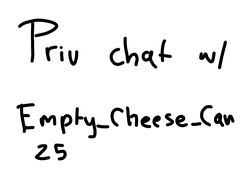 Priv chat w/
Empty_Cheese_Can
25